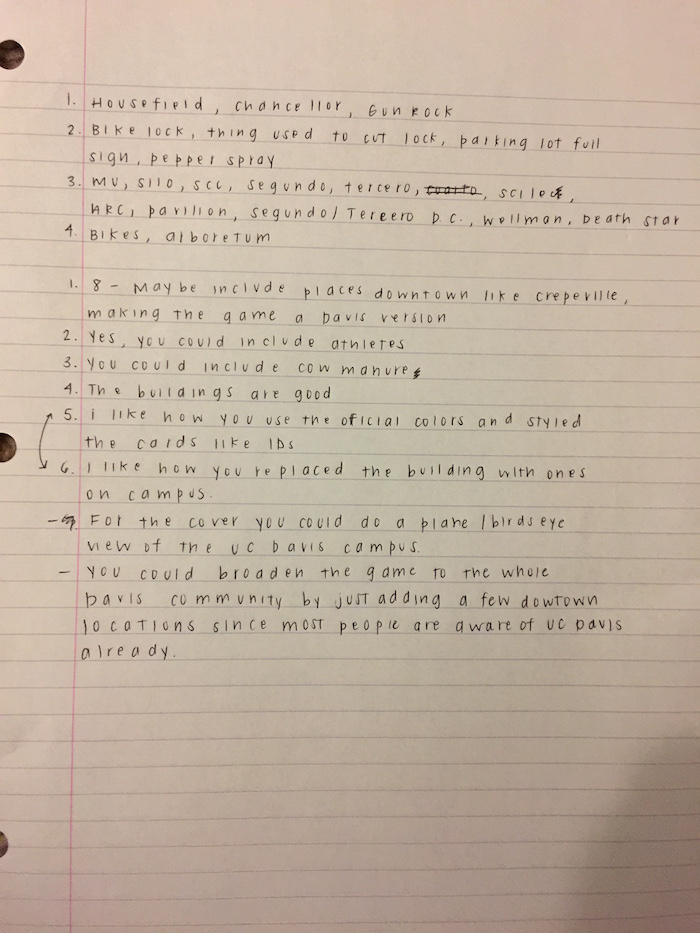 1. Housefield, Chancellor, Gunrock
2. Bike lock, thing used to cut lock, parking lot full
sign, pepper spray
3. MU, silo, SCC, segundo, tercero, cuarto, sci lec,
ARC, pavilion, segundo/Tercero D.C., Wellman, Death Star
4. Bikes, arboretum
1. 8 - Maybe include places downtown like crepeville,
making the game a Davis version
2. Yes, you could include athletes
3. You could include cow manure
4. The buildings are good
5. i like how you use the oficial colors and styled
the cards like IDs
6. I like how you replaced the building with ones
on campus.
- For the cover you could do a plane/birdseye
view of the UC Davis campus.
- You could broaden the game to the whole
Davis community by just adding a few dowtown
locations since most people are aware of UC Davis
already.